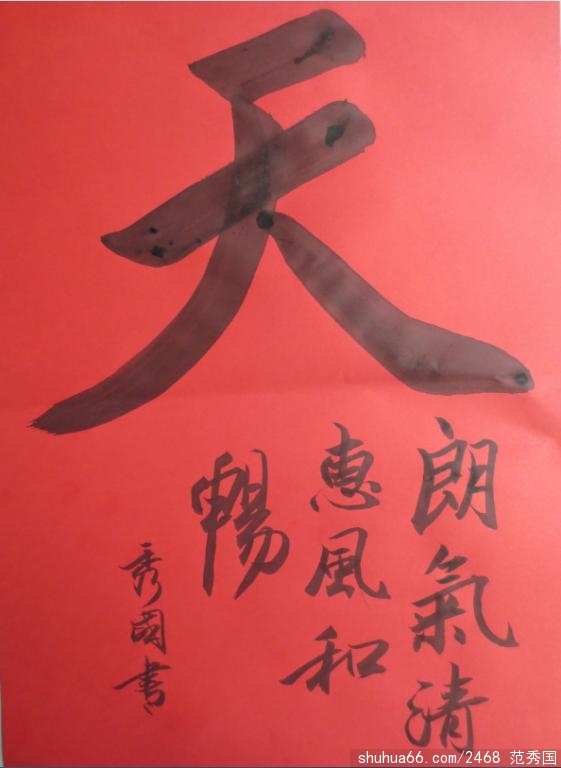 天
朗氣清
惠風和
暢
秀國書
shuhua66.com/2468 范秀国